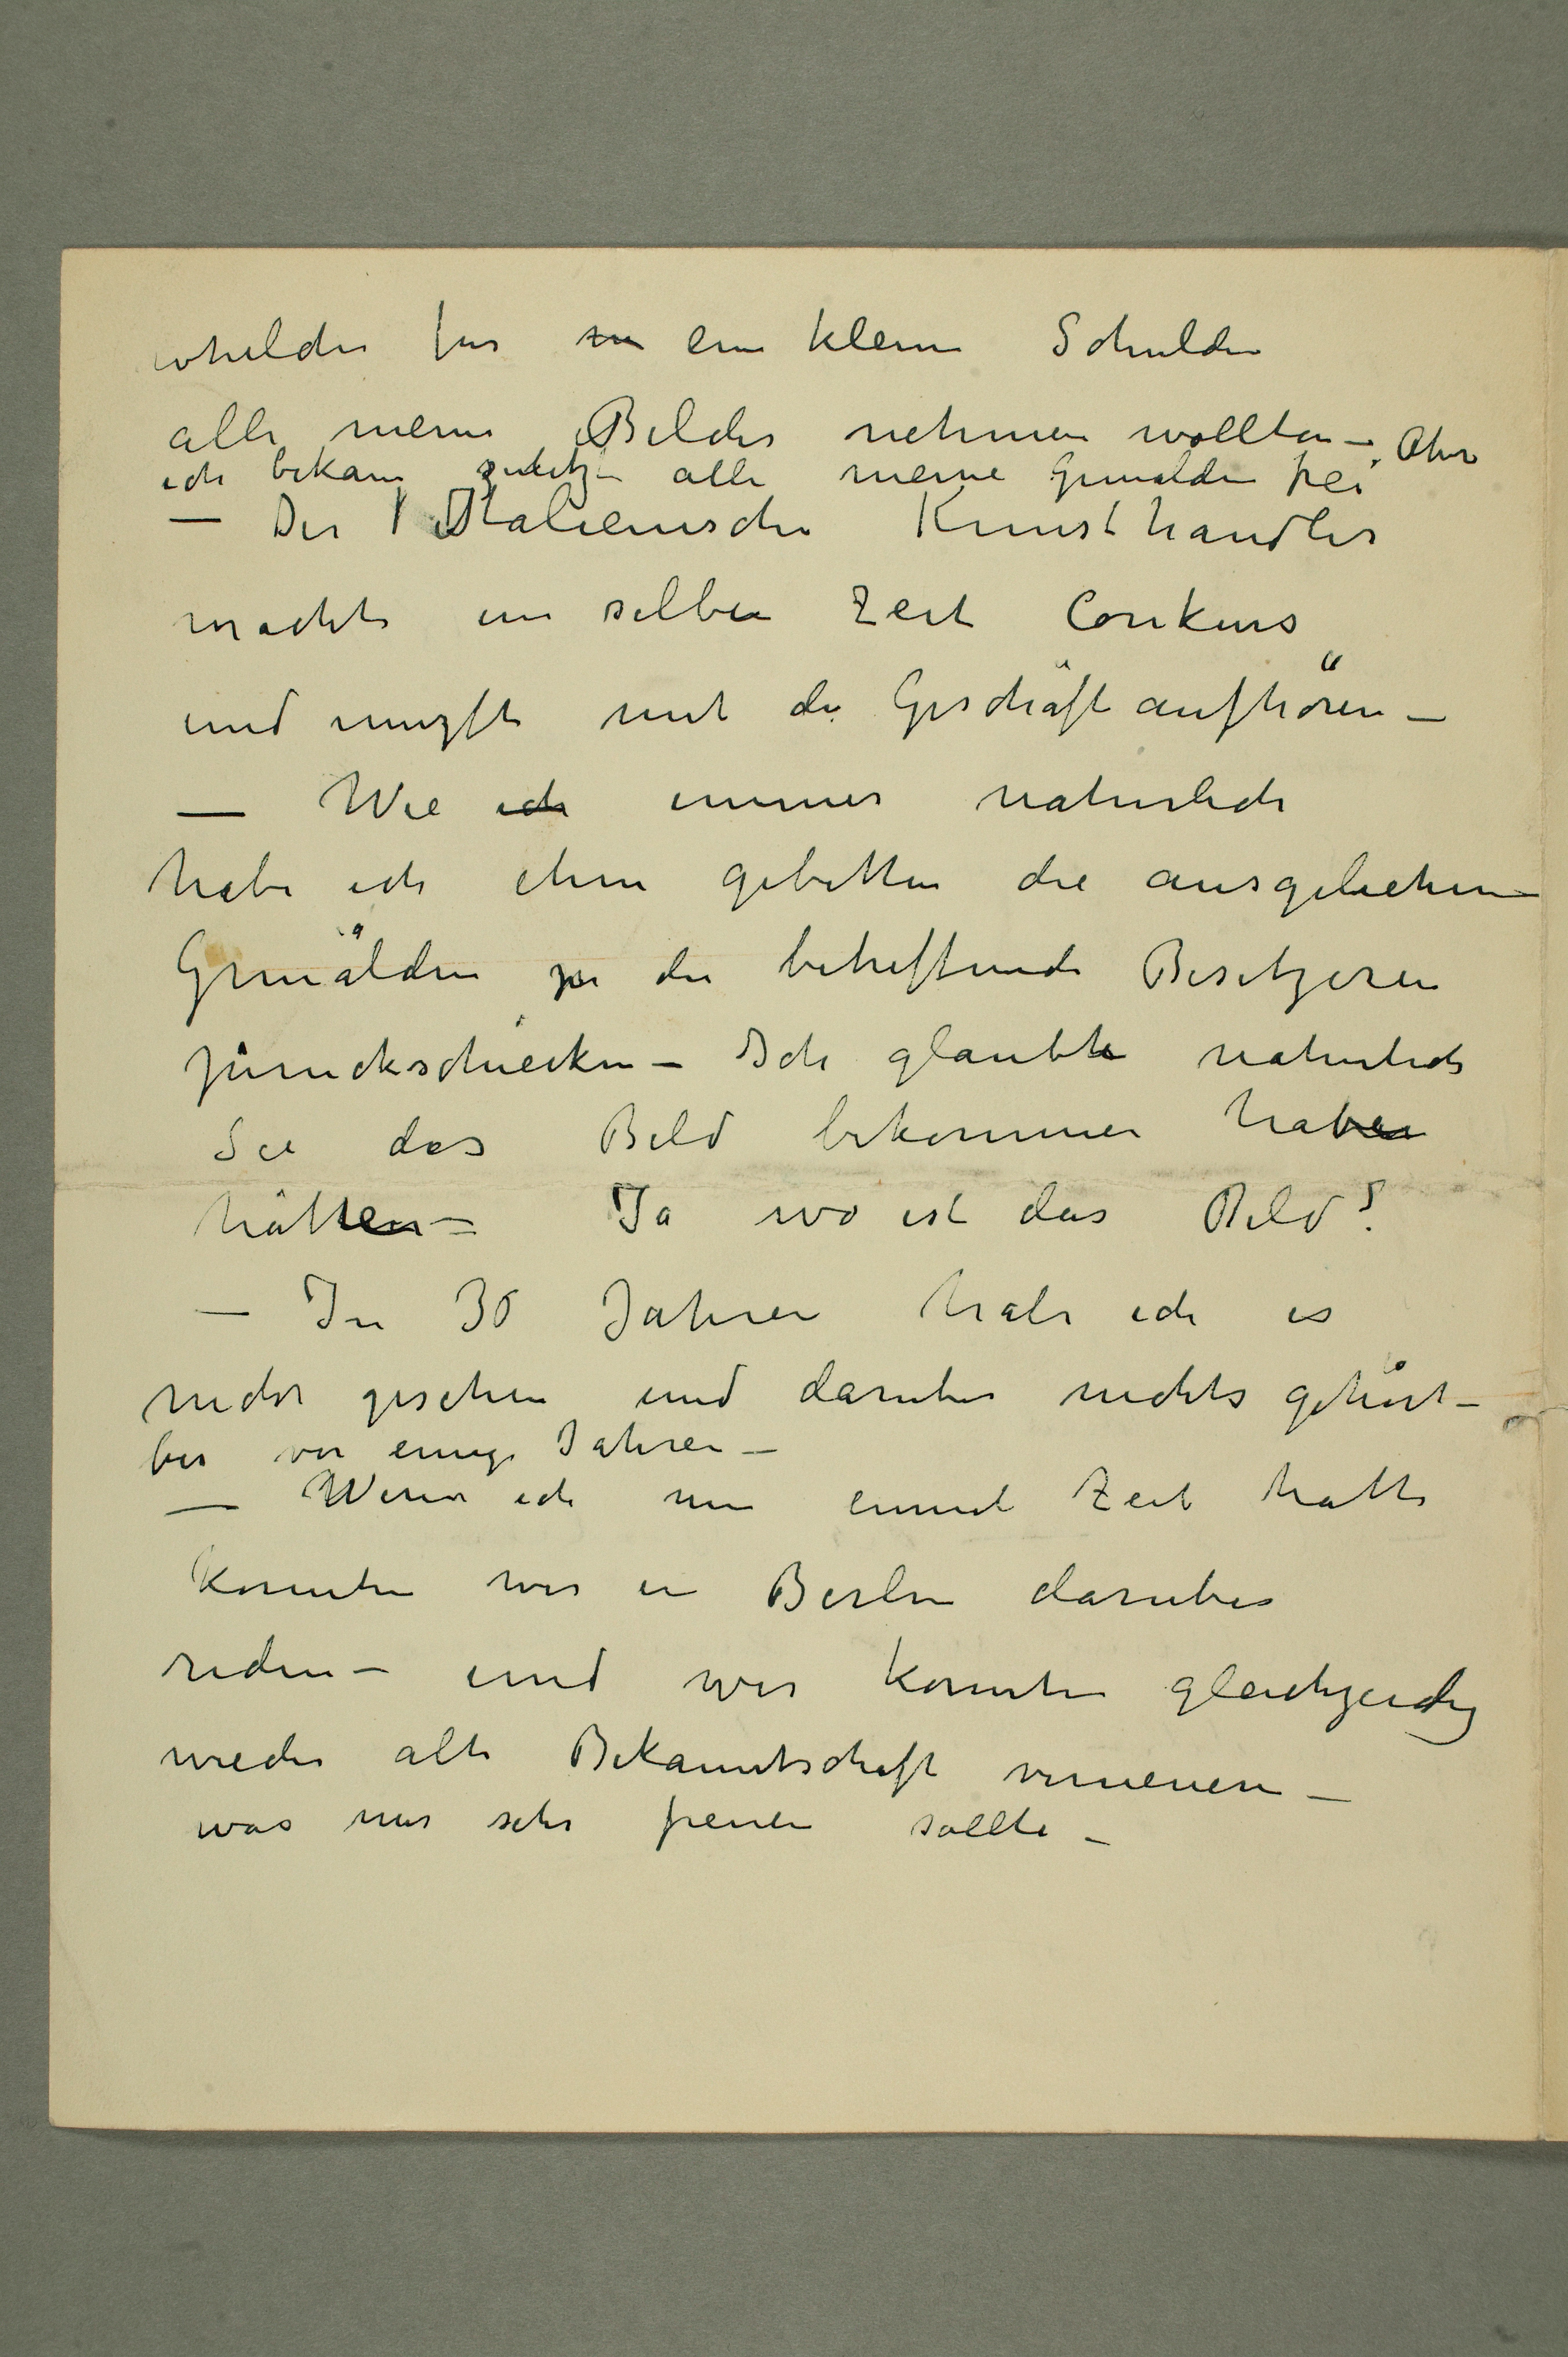 whelche für ~~m~~ ein kleine Schulden
alle meine Bilder nehmen wollten – Aber
ich bekam zuletzt alle meine Gemälden frei
– Der Italienische Kunsthändler
machte in selben Zeit Conkurs
und muszte mit de Geschäft aufhören –
– Wie ~~ich~~ immer natürlich
habe ich ihm gebetten die ausgeliehene
Gemälden zu die betreffende Besitzeren
zürückschiecken – Ich glaubte natürlich
Sie das Bild bekommen ~~haben~~
hätten – Ja wo ist das Bild?
– In 30 Jahren habe ich es
nicht gesehen und darüber nichts gehört –
bis vor einige Jahren –
– Wenn ich nun einmal Zeit hatte
konnten wir in Berlin darüber
reden – und wir konnten gleichzeidig
wieder alte Bekanntschaft erneuern –
was mir sehr freuen sollte –